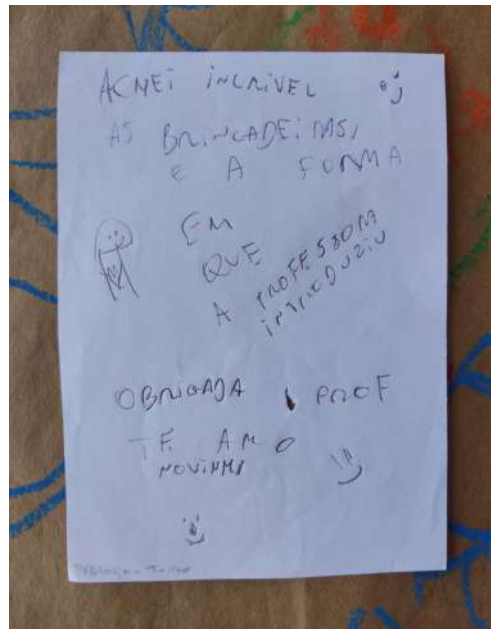 ACHEI INCRIVEL
AS BRINCADEIRAS,
E A FORMA
EM
QUE
A PROFESSORA
INTRODUZIU
OBRIGADA PROF
TE AMO
NOVINHA